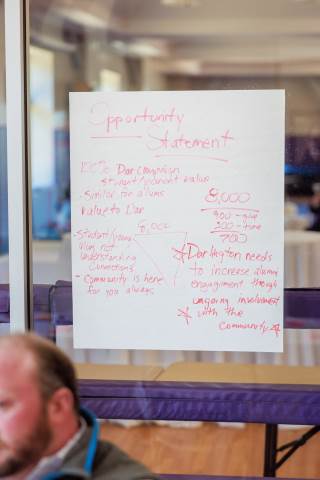 Opportunity
Statement
100% Dar campaign
student/parent value
- Similar for alums
Value to Dar
8,000
900 - give
200 - time
700
8,000
- Student/young
Alum not
understanding
connections
- Community is here
for you always
* Darlington needs
to increase alumni
engagement through
ongoing involvement
* with the
community *